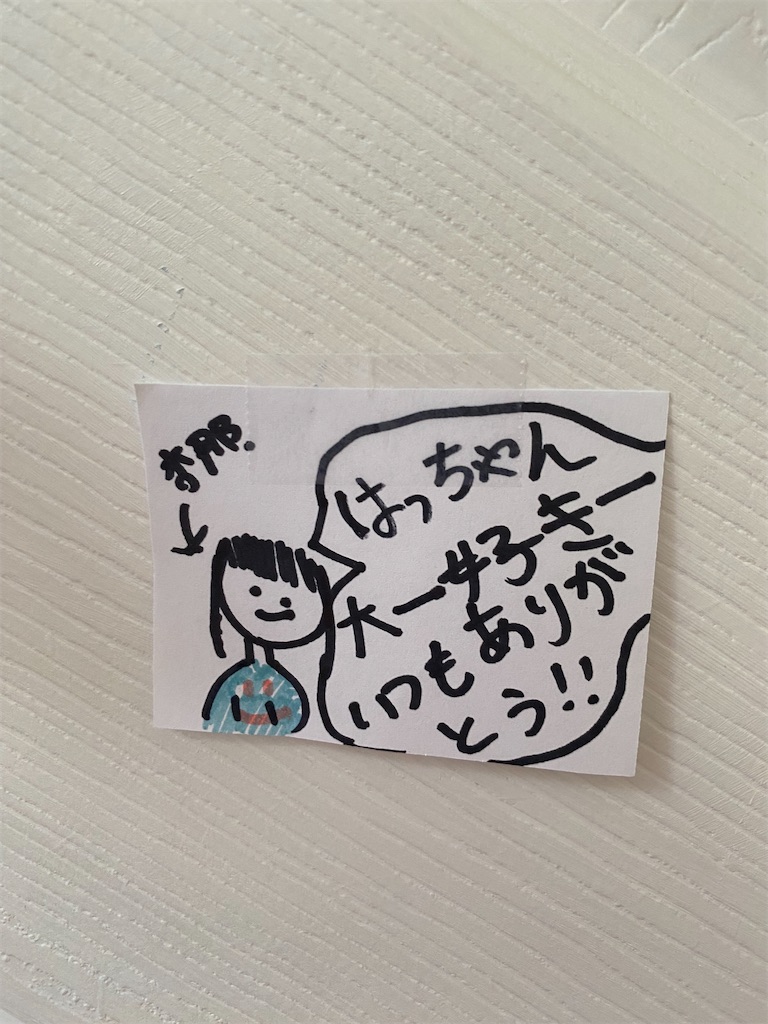 はっちゃん
大一好きー
いつもありが
とう!!